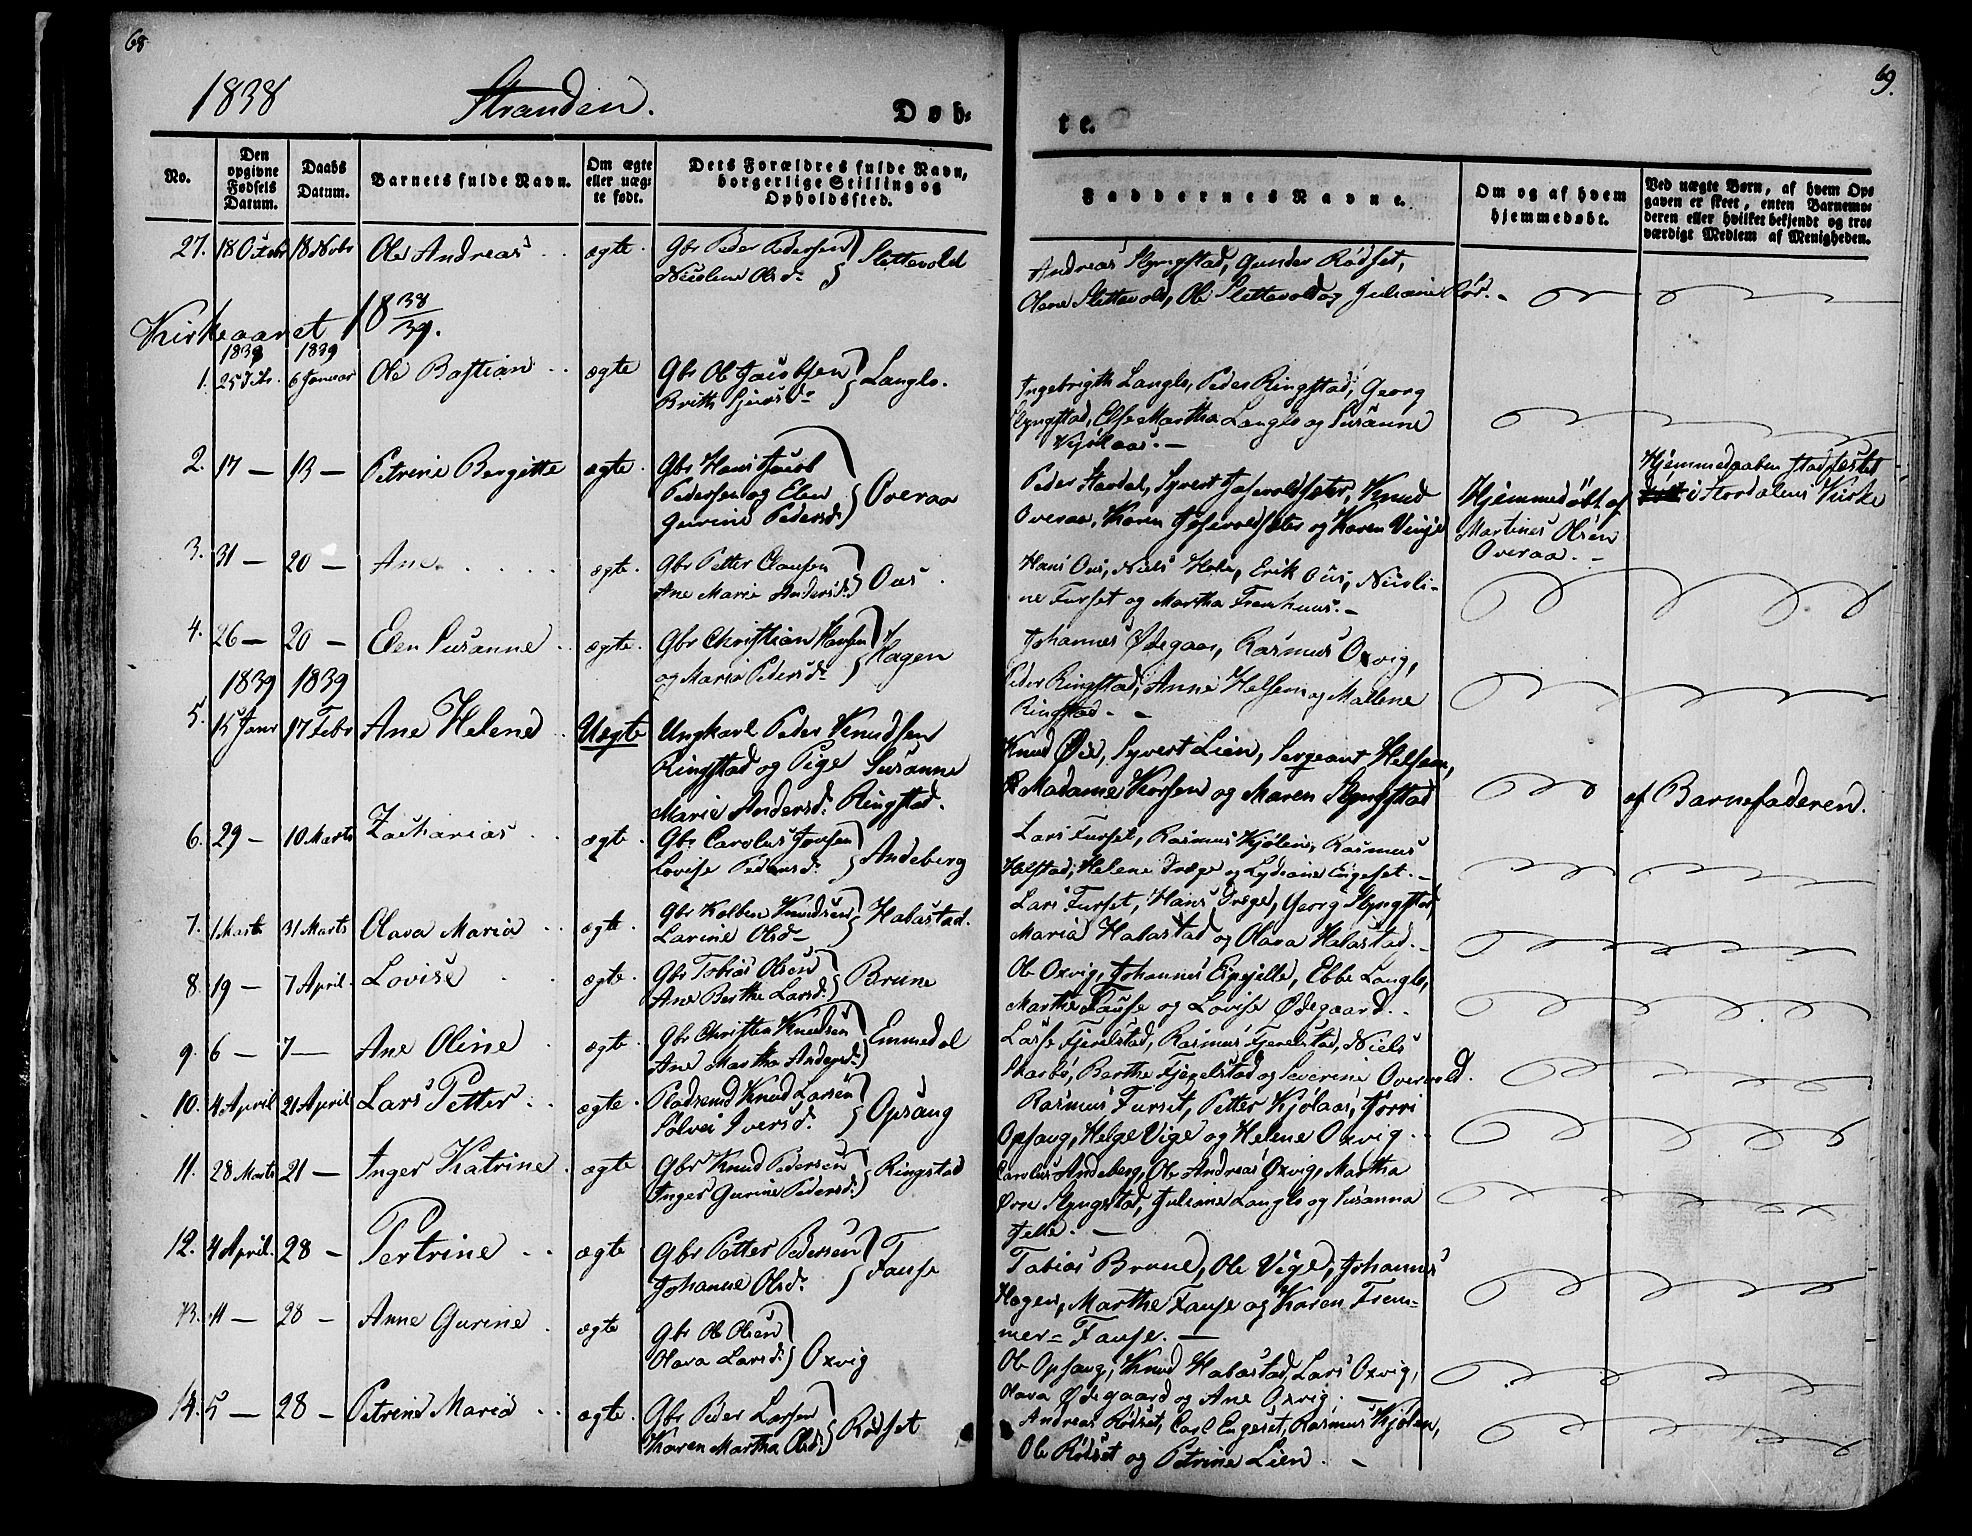 68
1838 Stranden. Døb-
No.
Den opgivne Fødsels Datum.
Daabs Datum.
Barnets fulde Navn.
Om ægte eller uægte født.
Dets Forældres fulde Navn, borgerlige Stilling og Opholdssted.
27. 18 Octobr 18 Novbr Ole Andreas ægte. Gbr Peder Pedersen Nicoline Olsdr Slettevold
Kirkeaaret 1838/39.
1838 1839
1. 25 6 Januar Ole Bastian ægte Gbr Ole Jacobsen Langlo.
Brith Sjursdr
2. 17 — 13 — Petrine Bergitte ægte. Gbr Hans Jacob
Pedersen og Elen Overaa
Gurine Pedersdr
3. 31 — 20 — Ane ægte. Gbr Petter Clausen
Ane Marie Andersdr Ous.
4. 26 — 20 — Elen Susanne ægte. Gbr Christian Hansen
og Marie Pedersdr Hagen
1839 1839
5. 15 Janr 17 Febr Ane Helene Uægte Ungkarl Peder Knudsen
Ringstad og Pige Susanne
Marie Andersdr Ringstad.
6. 29 — 10 Marts Zacharias ægte. Gbr Carolus
Lovise Pedersdr Andeberg
7. 1 Marts 31 Marts Olava Maria ægte. Gbr Kolben Knudsen Habostad.
Larine Olsdr
8. 19 — 7 April. Lovise ægte. Gbr Tobias Olsen Brune
Ane Berthe Larsdr
9. 6 — 7 — Ane Oline ægte. Gbr Christen Knudsen Emmedal
Ane Martha Andersdr
10. 4 April 21 April Lars Petter ægte. Pladsmd Knud Larsen
Solvei Iversdr Opsang
11. 28 Marts 21 — Inger Katrine ægte Gbr Knud Pedersen Ringstad
Inger Gurine Pedersdr
12. 4 April. 28 — Pertrine ægte Gbr Petter Pedersen
Johanne Olsdr Fause
13. 11 — 28 — Anne Gurine ægte Gbr Ole Olsen
Olava Larsdr Oxvig
14. 5 — 28 — Petrine Maria ægte. Gbr Peder Larsen
Karen Martha Olsdr Rødset
69.
te.
Faddernes Navne.
Om og af hvem hjemmedøbt.
Ved uægte Børn, af hvem Opgaven er skeet, enten Barnemoderen eller hvilket bekjendt og troværdigt Medlem af Menigheden.
Andreas Slyngstad, Gunder Rødset,
Olave Slettevold, Ole Slettevold og Juliane Rør.
Ingebrigth Langlo, Peder Ringstad, Georg
Slyngstad, Else Martha Langlo og Susanne
Kjølaas.
Peder Stavdal, Syvert Josevoldsæter, Knud
Overaa, Karen Josevoldsæter og Karen Vinje
Hjemmedøbt af
Martines Olsen
Overaa.
Hjemmedaaben stadfæstet
i Stordalens Kirke
Hans Ous, Niels Hole, Erik Ous, Nicoli-
ne Furset og Martha Fremhuus.
Johannes Ødegaar, Rasmus Oxvig,
Peder Ringstad, Anne Helsem og Mallene
Ringstad.
Knud Øie, Syvert Lien, Sergeant Helsem,
Madame Korsen og Maren Slyngstad
af Barnefaderen.
Lars Furset, Rasmus Kjølen, Rasmus
Helstad, Helene Dræge og Lydiane Engeset.
Lars Furset, Hans Drege, Georg Slyngstad,
Maria Habostad og Olava Habostad.
Ole Oxvig, Johannes, Ebbe Langlo,
Marthe Fause og Lovise Ødegaard.
Lasse Fjevelstad, Rasmus Fjevelstad, Niels
Skarbø, Berthe Fjevelstad og Severine Overvold.
Rasmus Furset, Petter Kjølaas, Jørri
Opsang, Helge Vige og Helene Oxvig.
Carolus Andeberg, Ole Andreas Oxvig, Martha
Slyngstad, Juliane Langlo og Susanna
Tobias Brune, Ole Vige, Johannes
Hagen, Marthe Fause og Karen Frem-
mer-Fause.
Ole Opsang, Knud Habostad, Lars Oxvig,
Olava Ødegaard og Ane Oxvig.
Andreas Rødset, Carl Engeset, Rasmus Kjølen,
Ole Rødset og Petrine Lien.